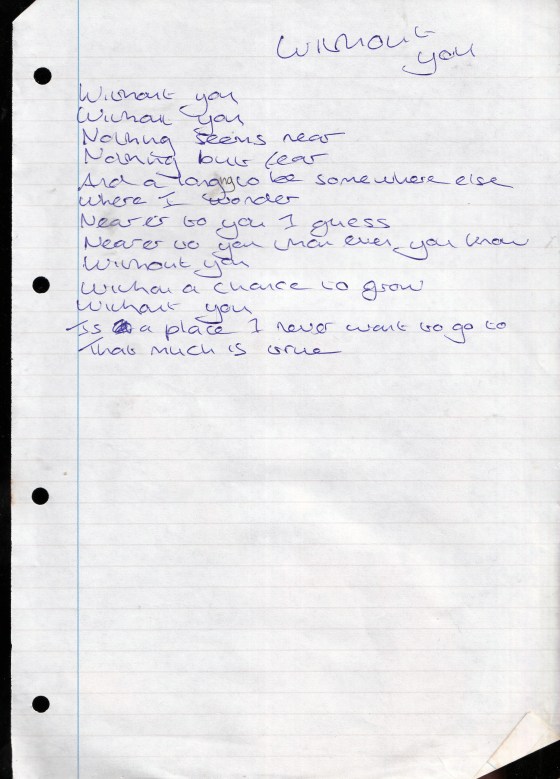 Without
you
Without you
Without you
Nothing seems near
Nothing but fear
And a longing to be somewhere else
Where I wonder
Nearer to you I guess
Nearer to you than ever you know
Without you
Without a chance to grow
Without you
Is a place I never want to go to
That much is true